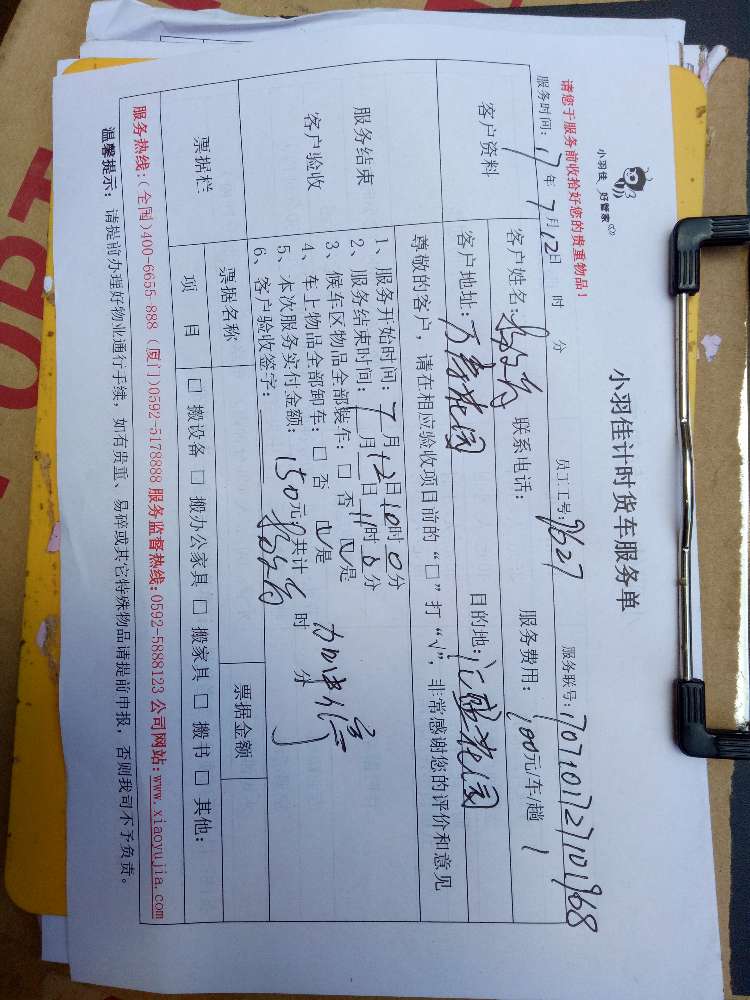 小羽佳 好管家
小羽佳计时货车服务单
请您于服务前收拾好您的贵重物品！
员工工号: 9627
服务联号: 1707101727101968
服务时间: 17年7月12日 时 分
客户资料
客户姓名: 联系电话: 服务费用: 100元/车/趟 1
客户地址: 万景花园 目的地: 汇腾花园
服务结束
客户验收
尊敬的客户，请在相应验收项目前的“□”打“√”，非常感谢您的评价和意见
1、服务开始时间: 7月12日10时0分
2、服务结束时间: 月 日11时0分
3、候车区物品全部装车: □ 否 ☑是
4、车上物品全部卸车: □ 否 ☑是
5、本次服务实付金额: 150元, 共计 时 分
6、客户验收签字:
票据栏
票据名称
票据金额
项 目
□ 搬设备 □ 搬办公家具 □ 搬家具 □ 搬书 □ 其他:
服务热线:(全国)400-6655-888 (厦门)0592-5178888 服务监督热线:0592-5888123 公司网站:www.xiaoyujia.com
温馨提示: 请提前办理好物业通行手续，如有贵重、易碎或其它特殊物品请提前申报，否则我司不予负责。